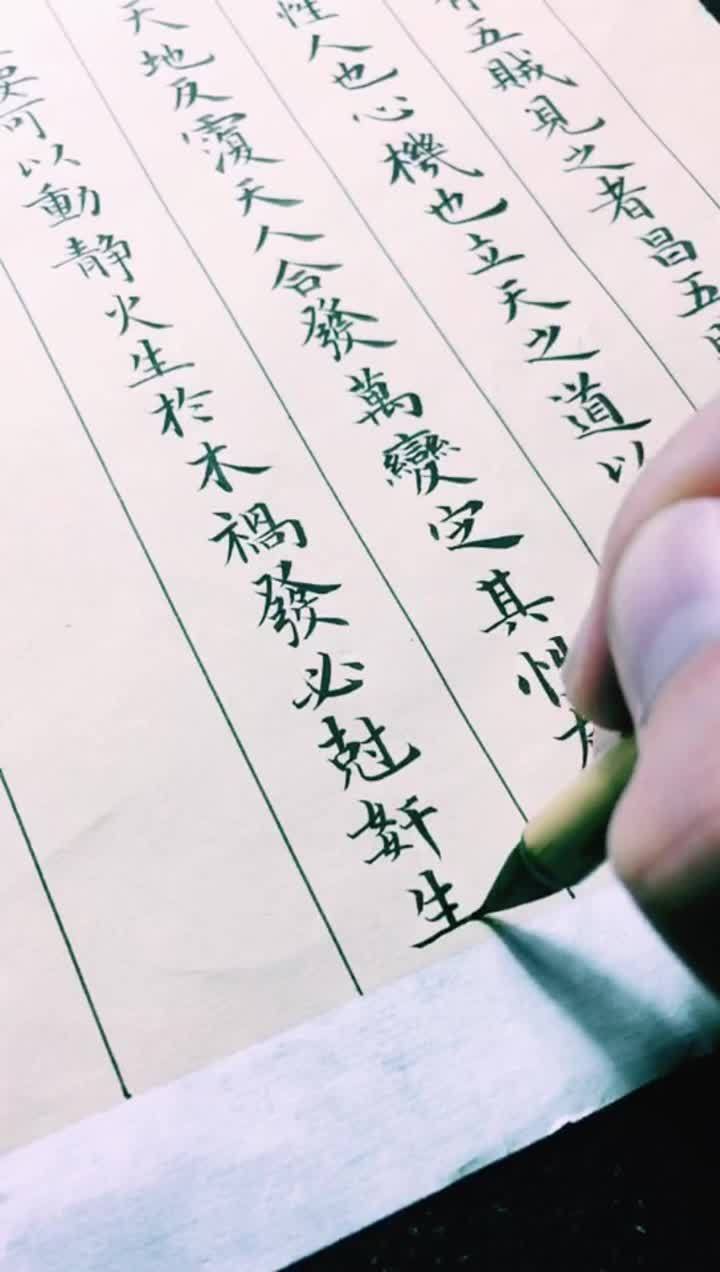 五賊見之者昌五
性人也心機也立天之道以
天地反覆天人合發萬變定其性
可以動靜火生於木禍發必尅姧生